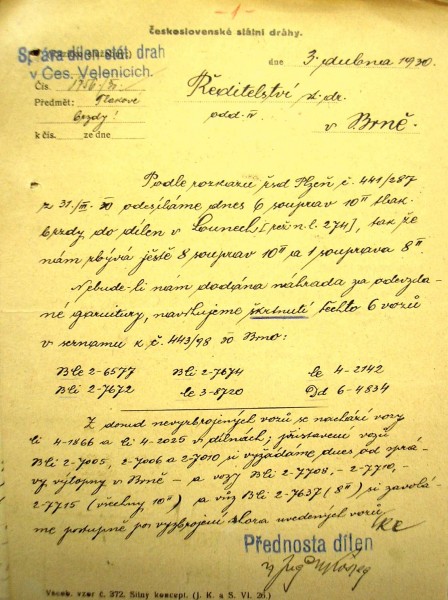 -1-
Československé státní dráhy.
Správa dílen stát. drah
v Čes. Velenicích.
dne 3. dubna 1930.
Čís.
Předmět: Tlakové
brzdy!
k čís. ze dne
Ředitelství st. dr.
odd. IV.
v Brně.
Podle rozkazu řsd Plzeň č. 441/287
z 31./III. 30 odesíláme dnes 6 souprav 10" tlak.
brzdy do dílen v Lounech [ n.l. 274], tak že
nám zbývá ještě 8 souprav 10" a 1 souprava 8".
Nebude-li nám dodána náhrada za odevzda-
né garnitury, navrhujeme škrtnutí těchto 6 vozů
v seznamu k č. 443/98 30 Brno:
Ble 2-6577 Bli 2-7674 le 4-2142
Bli 2-7672 le 3-8720 Dd 6-4834
Z dosud nevyzbrojených vozů se nachází vozy
li 4-1866 a li 4-2025 v dílnách; přistavení vozů
Bli 2-7005, 2-7006 a 2-7010 si vyžádáme dnes od sprá-
vy výtopny v Brně - a vozy Bli 2-7708,- 2-7710,-
2-7715 (všechny 10") a vůz Bli 2-7637 (8") si zavolá-
me postupně po vyzbrojení shora uvedených vozů.
Přednosta dílen
Vácak. vzor č. 372. Silný koncept. (J. K. a S. VI. 26.)